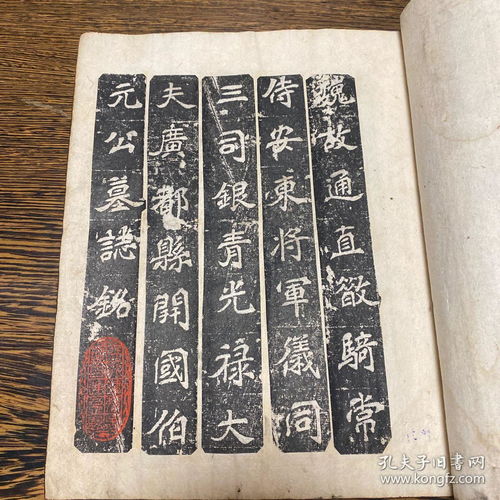 魏故通直散騎常
侍安東將軍儀同
三司銀青光祿大
夫廣都縣開國伯
元公墓誌銘
孔夫子旧书网
kongfz.com